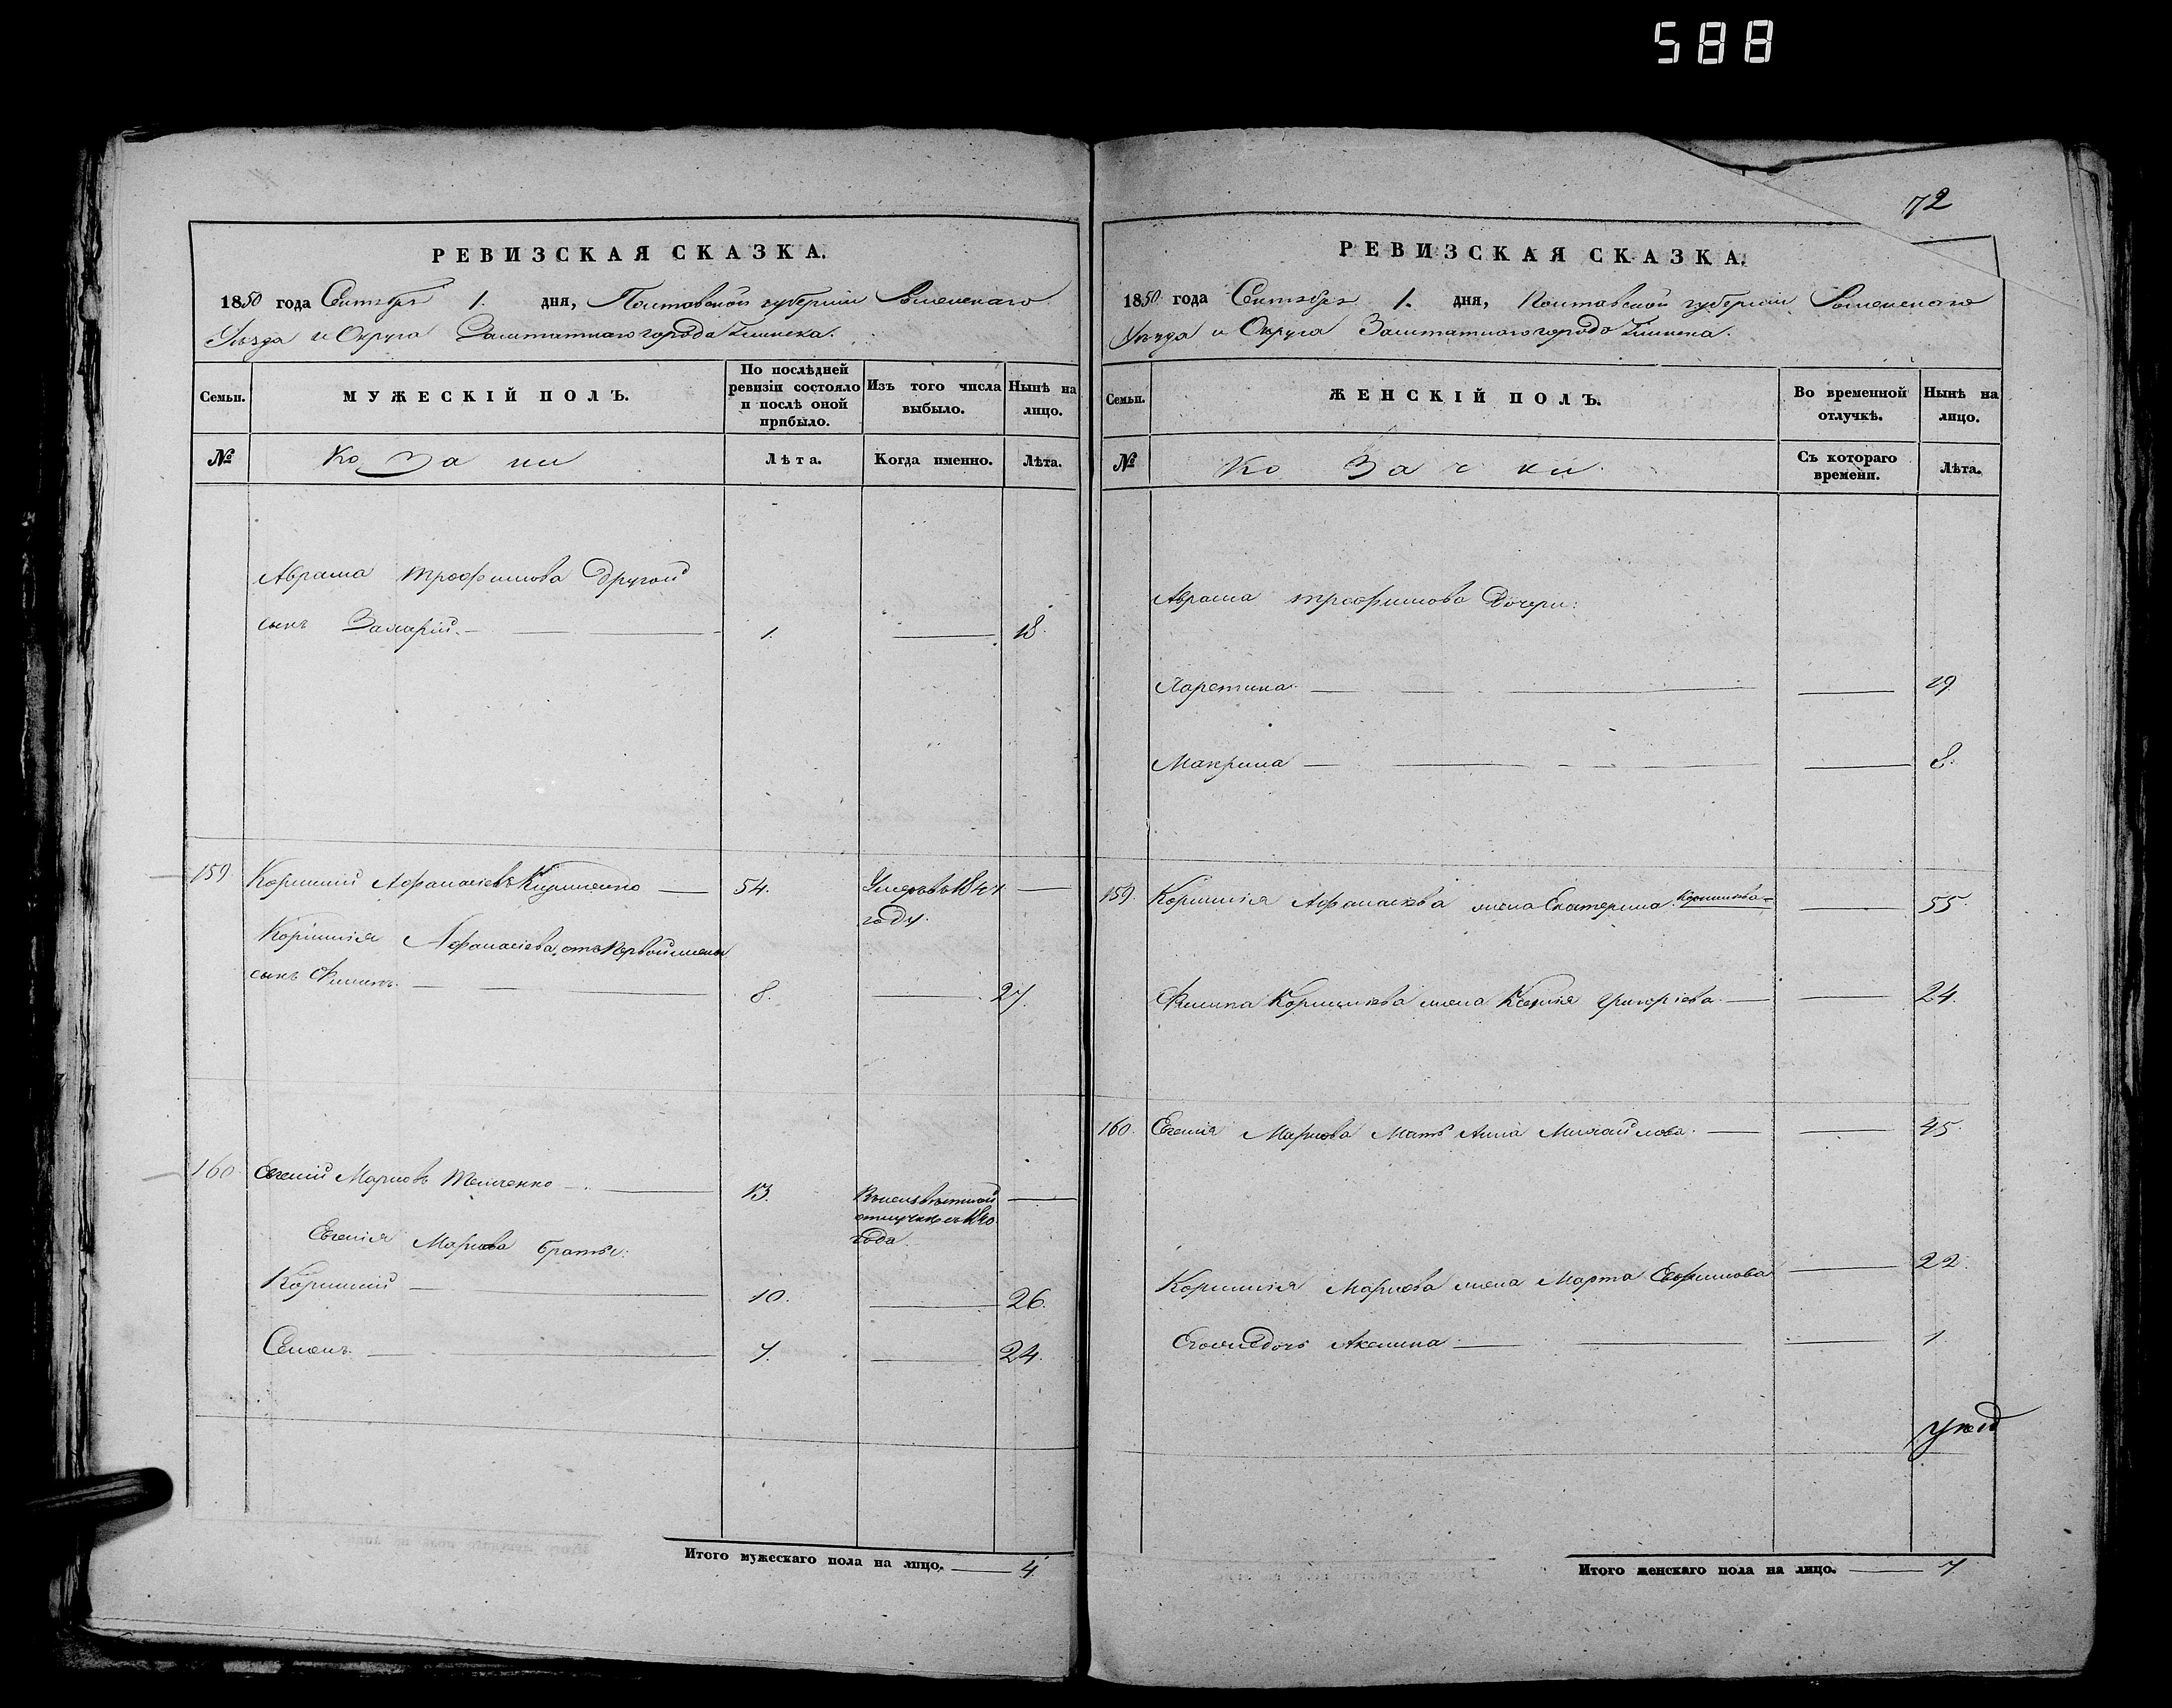 588
72
РЕВИЗСКАЯ СКАЗКА.
1850 года Сентября 1. дня, Полтавской губернiи Роменскаго
Уѣзда и Округа Заштатнаго города Глинска.
Семьи.
МУЖЕСКІЙ ПОЛЪ.
По послѣдней ревизіи состояло и послѣ оной прибыло.
Изъ того числа выбыло.
Нынѣ на лицо.
№
Козаки
Лѣта.
Когда именно.
Лѣта.
Абрама Трофимова другой
сынъ Захарій. 1. 18.
159. Корнилій Афанасіевъ 54. Умеръ въ
году.
Корнилія Афанасіева, отъ первой жены
сынъ Филипъ. 8. 27.
160. Евгеній Марковъ 13. Въ неизвѣстной
отлучкѣ съ 1840
года.
Евгенія Маркова братья:
Корнилій 10. 26.
Семенъ. 7. 24.
Итого мужескаго пола на лицо. 4.
РЕВИЗСКАЯ СКАЗКА.
1850 года Сентября 1. дня, Полтавской губерніи Роменскаго
Уѣзда и Округа Заштатнаго города Глинска.
Семьи.
ЖЕНСКІЙ ПОЛЪ.
Во временной отлучкѣ.
Нынѣ на лицо.
№
Козачки.
Съ котораго времени.
Лѣта.
Абрама Трофимова дочери:
19.
Макрина 8.
159. Корнилія Афанасіева жена Екатерина 55.
Филипа Корниліева жена Ксенія Григоріева. 24.
160. Евгенія Маркова мать Анна Михайлова. 45.
Корнилія Маркова жена Марта Евфимова 22.
Егожъ дочь Акилина 1.
Итого женскаго пола на лицо. 7